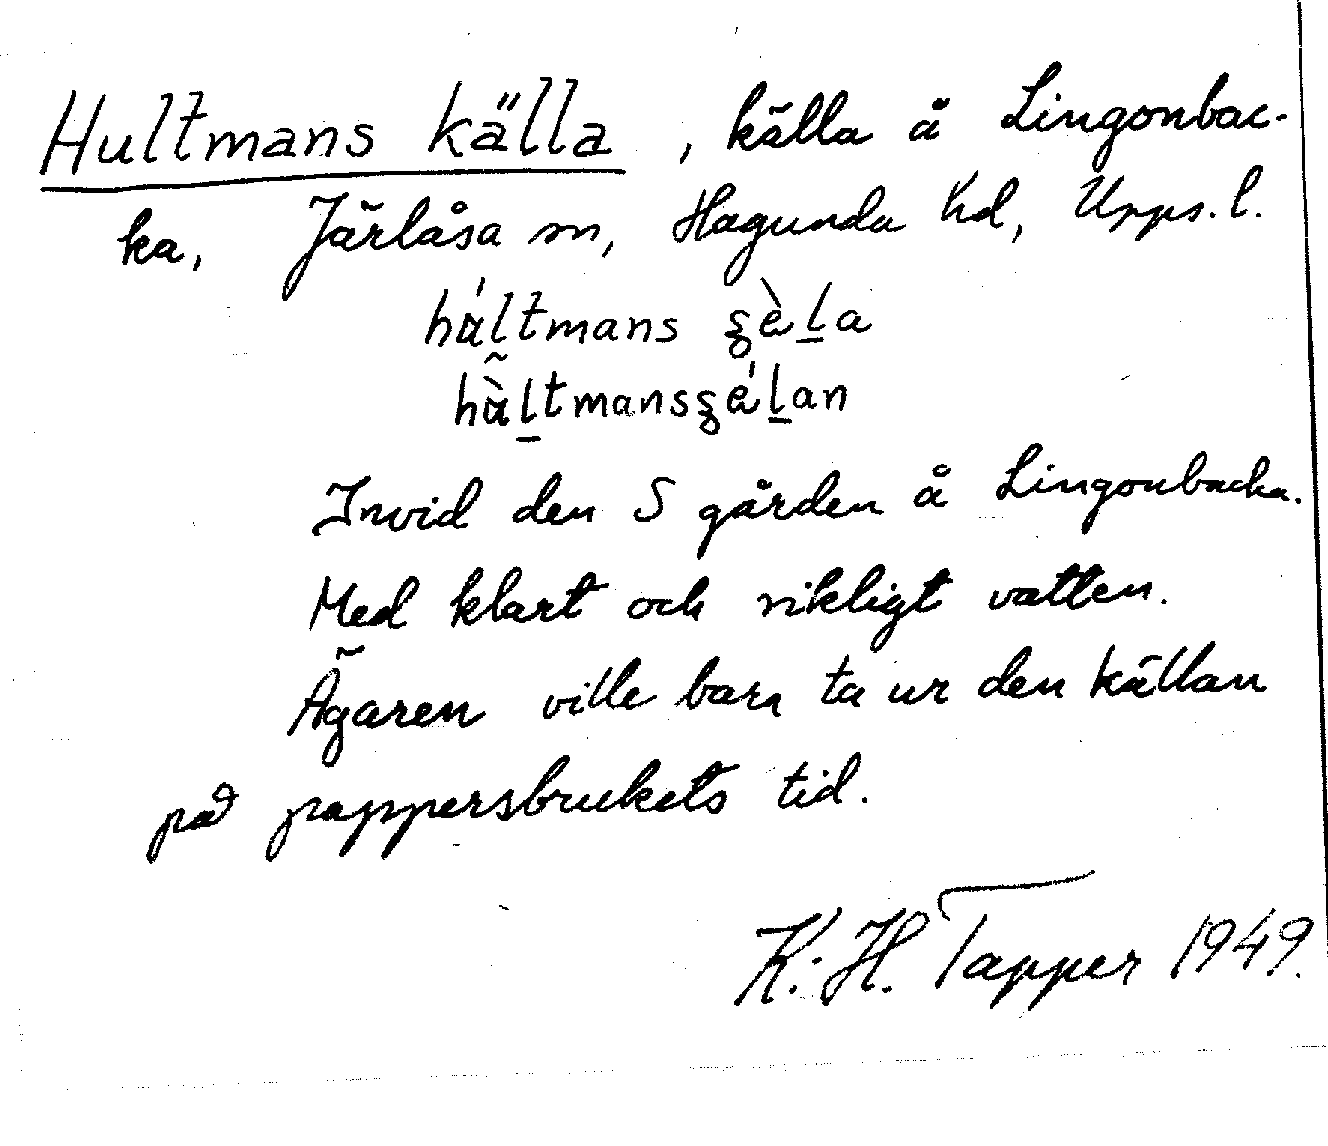 Hultmans källa, källa å Lingonbac-
ka, Järlåsa sn, Hagunda hd, Upps. l.
Invid den S gården å Lingonbacka.
Med klart och rikligt vatten.
Ägaren ville bara ta ur den källan
på pappersbrukets tid.
K. H. Tapper 1949.